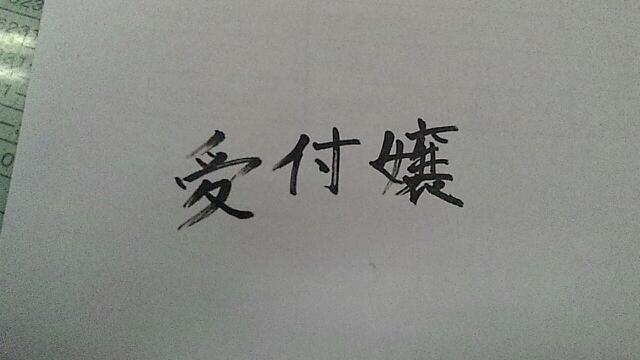 受付嬢